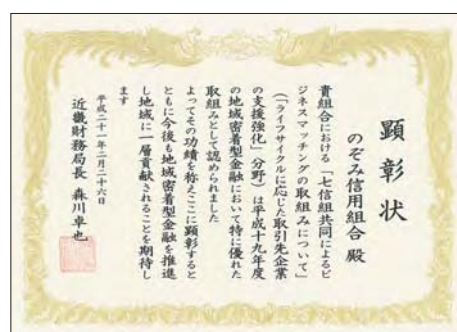 顕彰状
のぞみ信用組合 殿
貴組合における「七信組共同によるビ
ジネスマッチングの取組みについて」
(「ライフサイクルに応じた取引先企業
の支援強化」分野)は平成十九年度
の地域密着型金融において特に優れた
取組みとして認められました
よってその功績を称えここに顕彰すると
ともに今後も地域密着型金融を推進
し地域に一層貢献されることを期待し
ます
平成二十一年二月二十六日
近畿財務局長 森川卓也